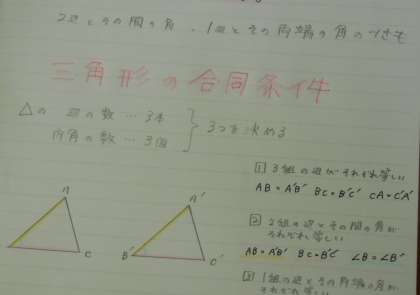 2辺とその間の角 、1辺とその両端の角のつきも
三角形の合同条件
△の 辺の数 … 3本
内角の数 … 3個
3つを決める
A
C
A'
B'
C'
1 3組の辺がそれぞれ等しい
AB = A'B' BC = B'C' CA = C'A'
2 2組の辺とその間の角が
それぞれ等しい
AB = A'B' BC = B'C' ∠B = ∠B'
3 1組の辺とその両端の角が
それぞれ等しい